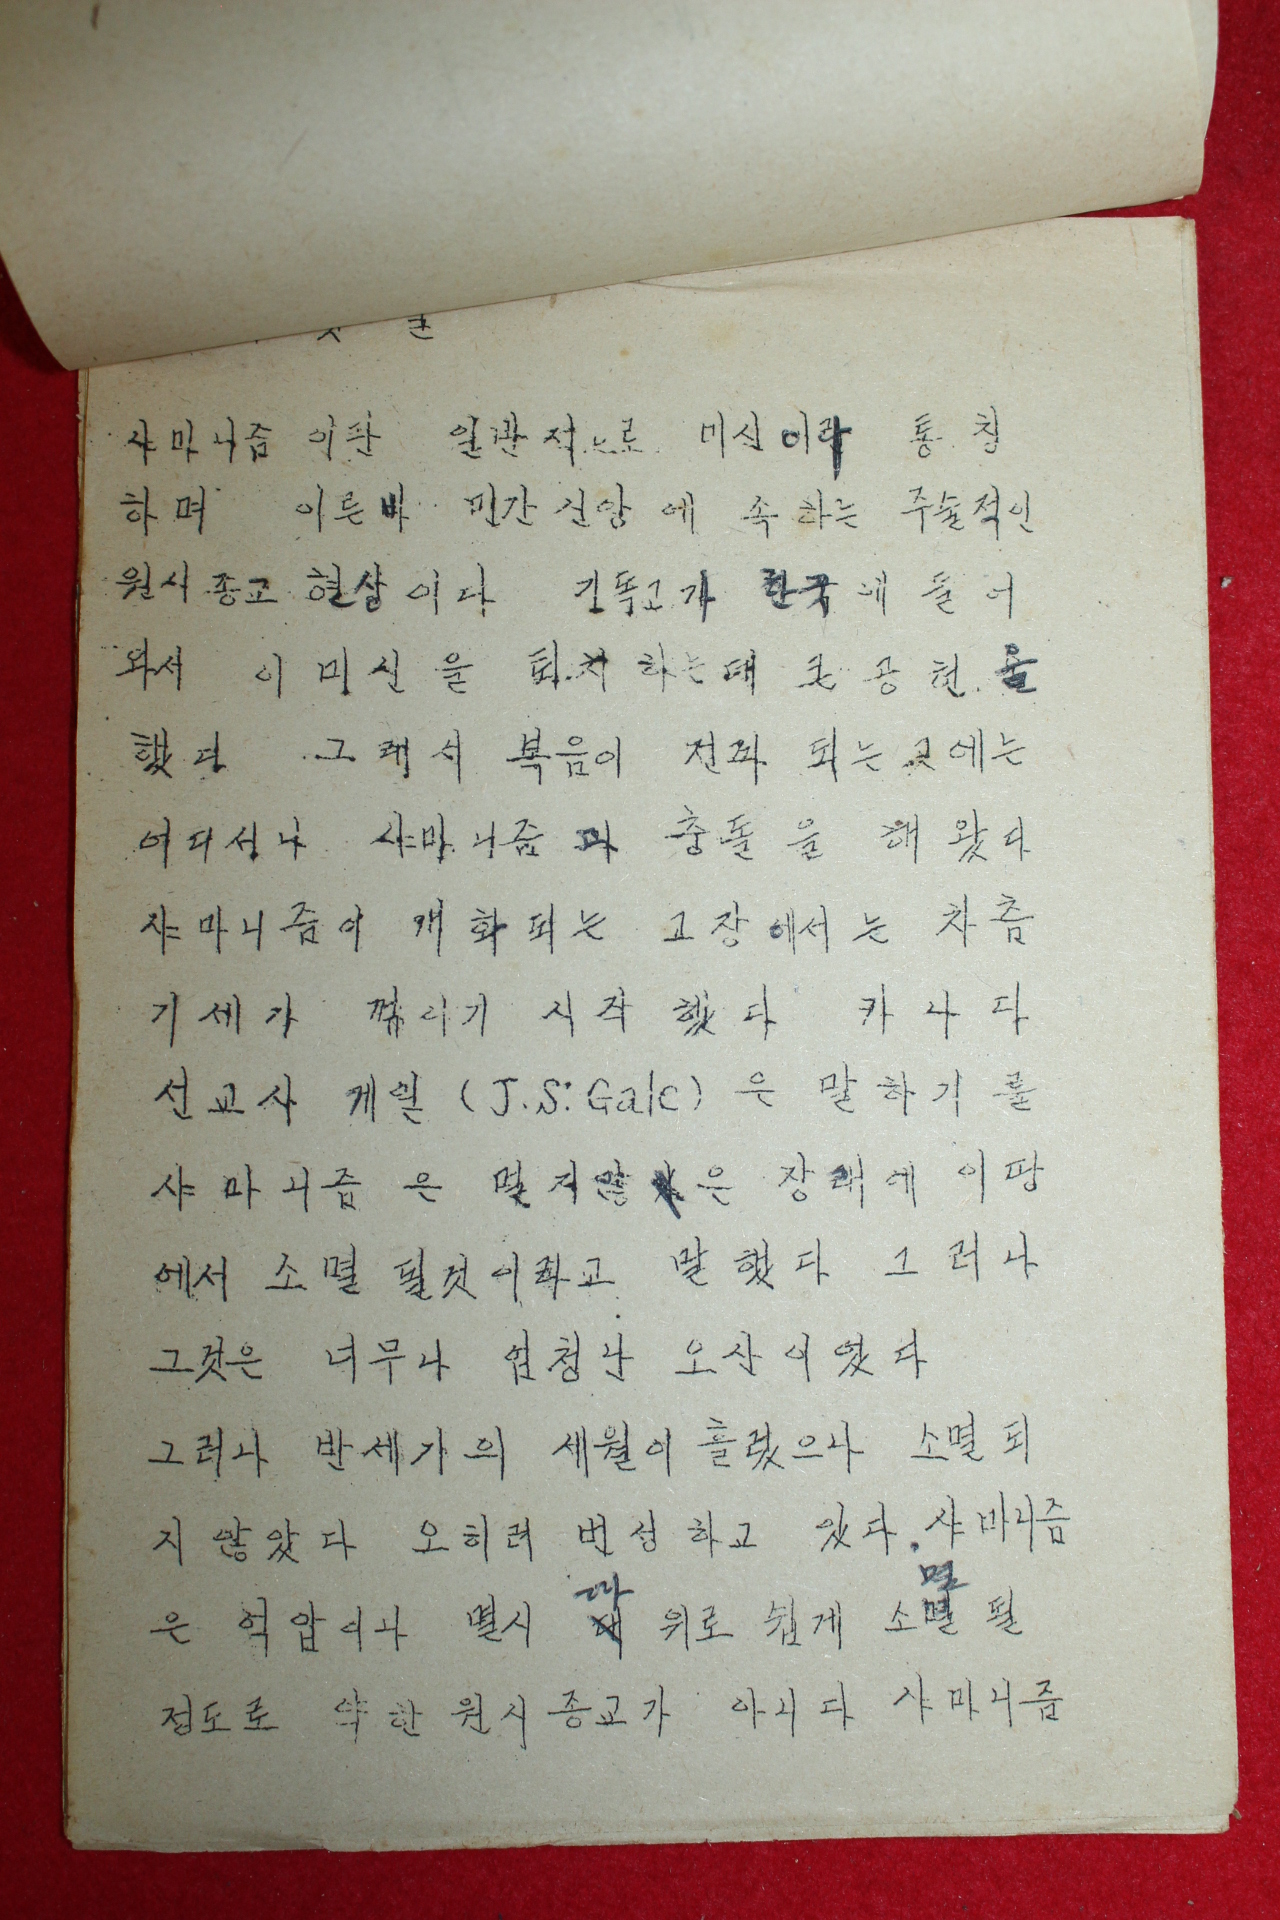 샤마니즘이란 일반적으로 미신이라 통칭
하며 이른바 민간신앙에 속하는 주술적인
원시종교 현상이다 긔독교가 한국에 들어
와서 이 미신을 퇴치하는데 큰 공헌을
했다 그래서 복음이 전파 되는곳에는
어디서나 샤마니즘과 충돌을 해왔다
샤마니즘이 개화되는 고장에서는 차츰
기세가 꺾이기 시작했다 카나다
선교사 게일 (J.S. Gale)은 말하기를
샤마니즘은 멀지않은 장래에 이땅
에서 소멸 될것이라고 말했다 그러나
그것은 너무나 엄청난 오산이였다
그러나 반세기의 세월이 흘렀으나 소멸되
지 않았다 오히려 번성하고 있다. 샤마니즘
은 억압이나 멸시 따위로 쉽게 소멸 될
정도로 약한 원시종교가 아니다 샤마니즘